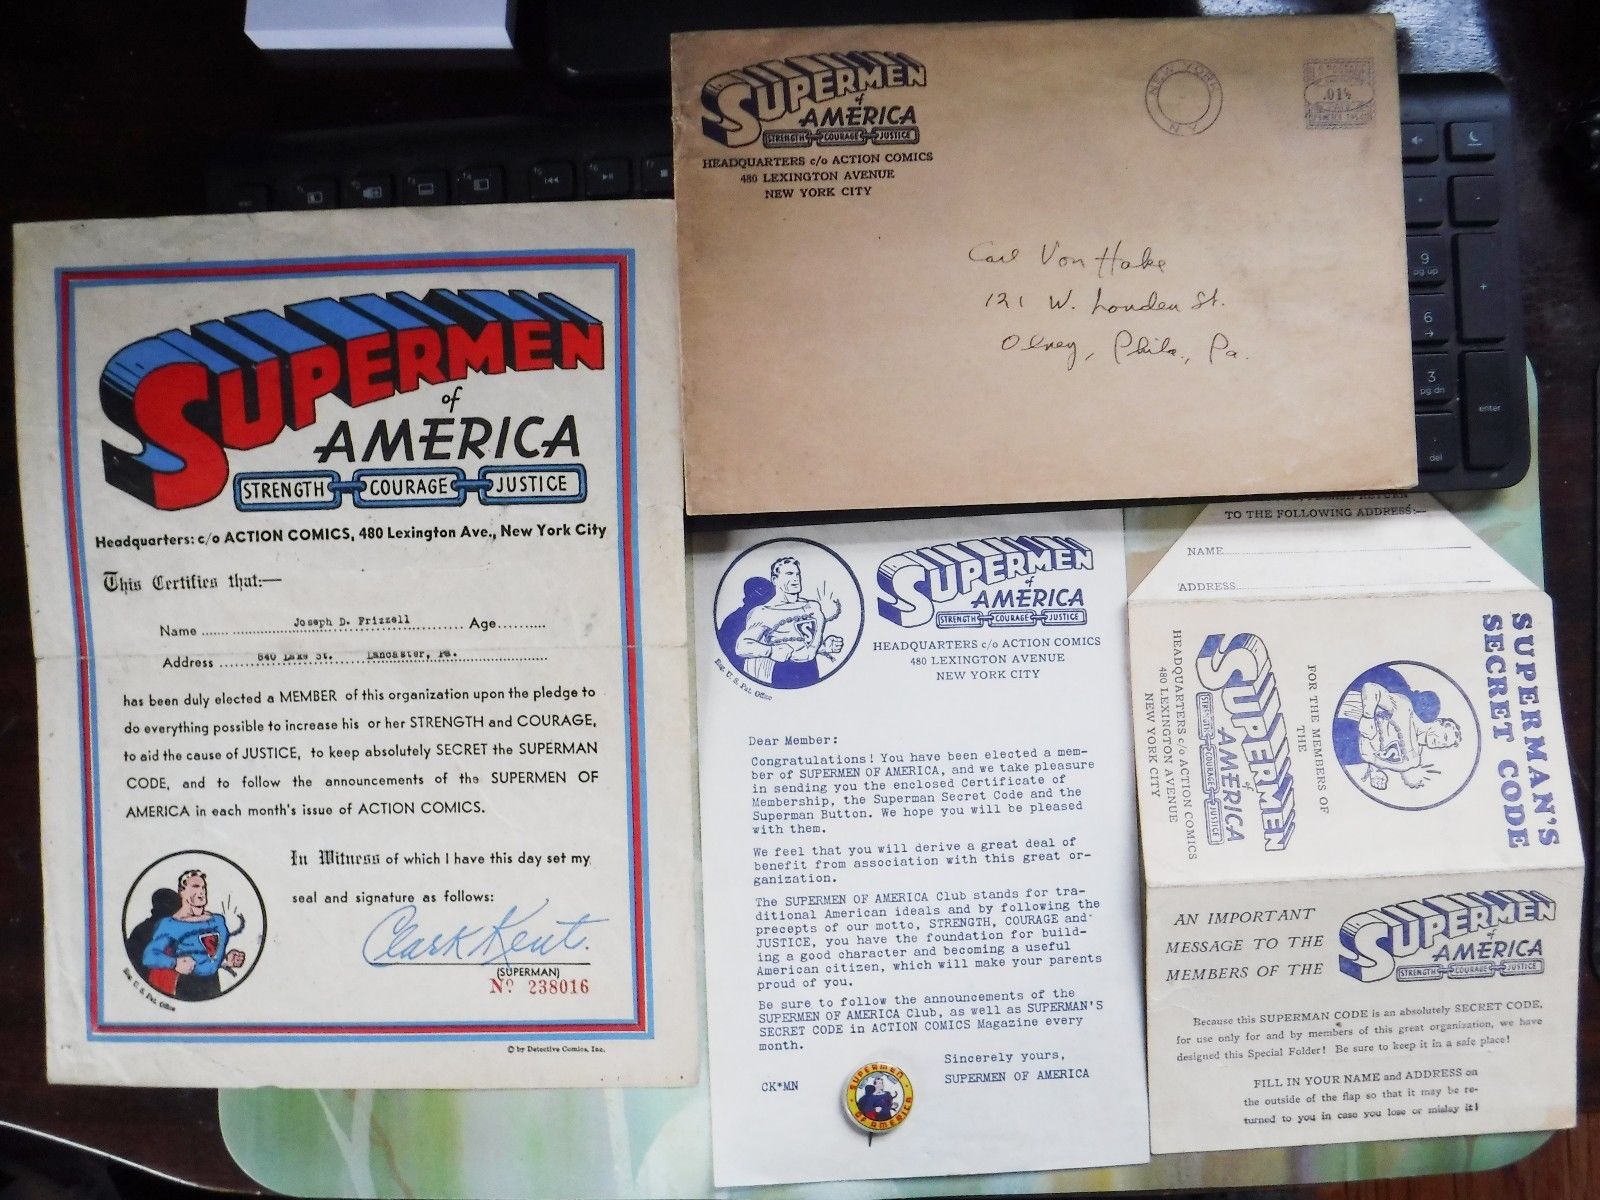 SUPERMEN
of
AMERICA
STRENGTH COURAGE JUSTICE
HEADQUARTERS c/o ACTION COMICS
480 LEXINGTON AVENUE
NEW YORK CITY
NEW YORK
N.Y.
.01½
Carl Von Hake
121 W. Louden St.
Olney, Phila., Pa.
SUPERMEN
of
AMERICA
STRENGTH COURAGE JUSTICE
Headquarters: c/o ACTION COMICS, 480 Lexington Ave., New York City
This Certifies that:—
Name Joseph D. Frizzell Age
Address 840 Lake St. Lancaster, Pa.
has been duly elected a MEMBER of this organization upon the pledge to
do everything possible to increase his or her STRENGTH and COURAGE,
to aid the cause of JUSTICE, to keep absolutely SECRET the SUPERMAN
CODE, and to follow the announcements of the SUPERMEN OF
AMERICA in each month's issue of ACTION COMICS.
In Witness of which I have this day set my
seal and signature as follows:
Clark Kent.
(SUPERMAN)
Nº 238016
Reg. U. S. Pat. Office
© by Detective Comics, Inc.
SUPERMEN
of
AMERICA
STRENGTH COURAGE JUSTICE
HEADQUARTERS c/o ACTION COMICS
480 LEXINGTON AVENUE
NEW YORK CITY
Reg. U. S. Pat. Office
Dear Member:
Congratulations! You have been elected a mem-
ber of SUPERMEN OF AMERICA, and we take pleasure
in sending you the enclosed Certificate of
Membership, the Superman Secret Code and the
Superman Button. We hope you will be pleased
with them.
We feel that you will derive a great deal of
benefit from association with this great or-
ganization.
The SUPERMEN OF AMERICA Club stands for tra-
ditional American ideals and by following the
precepts of our motto, STRENGTH, COURAGE and
JUSTICE, you have the foundation for build-
ing a good character and becoming a useful
American citizen, which will make your parents
proud of you.
Be sure to follow the announcements of the
SUPERMEN OF AMERICA Club, as well as SUPERMAN'S
SECRET CODE in ACTION COMICS Magazine every
month.
Sincerely yours,
SUPERMEN OF AMERICA
CK*MN
SUPERMEN
OF AMERICA
RETURN
TO THE FOLLOWING ADDRESS:—
NAME
ADDRESS
SUPERMAN'S
SECRET CODE
FOR THE MEMBERS OF
THE
SUPERMEN
of
AMERICA
STRENGTH COURAGE JUSTICE
HEADQUARTERS c/o ACTION COMICS
480 LEXINGTON AVENUE
NEW YORK CITY
AN IMPORTANT
MESSAGE TO THE
MEMBERS OF THE
SUPERMEN
of
AMERICA
STRENGTH COURAGE JUSTICE
Because this SUPERMAN CODE is an absolutely SECRET CODE,
for use only for and by members of this great organization, we have
designed this Special Folder! Be sure to keep it in a safe place!
FILL IN YOUR NAME and ADDRESS on
the outside of the flap so that it may be re-
turned to you in case you lose or mislay it!
9
pg up
6
3
pg dn
+
-
enter
del